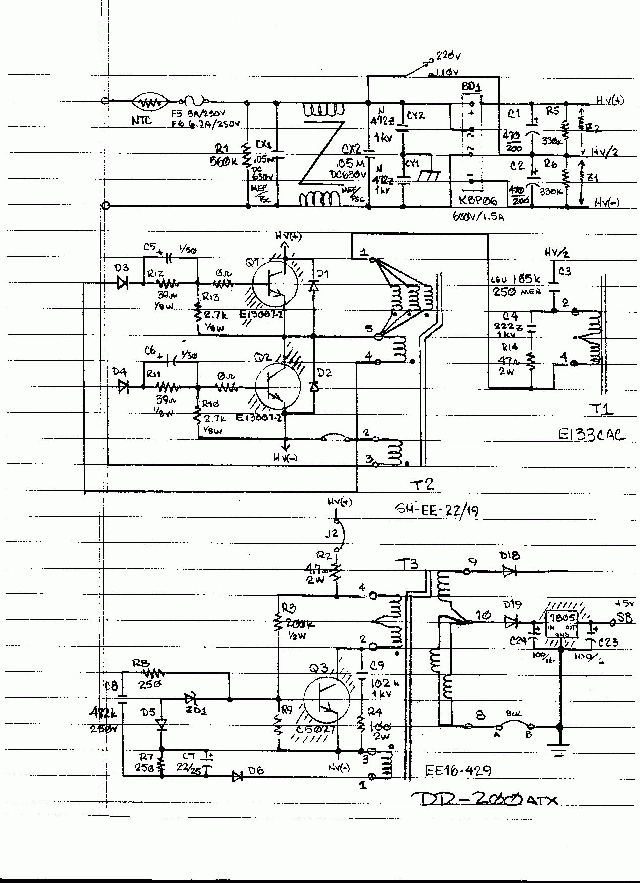 220V
110V
NTC
F5 5A/250V
F6 6.3A/250V
R1
560K
CX1
.05M
DC
630V
MEF
TSC
MEF/
TSC
CX2
.05M
DC630V
N
472Z
1KV
CY2
N
472Z
1KV
CY1
BD1
KBP06
600V/1.5A
C1
470
200
R5
330K
Z2
C2
470
200
R6
330K
Z1
HV(+)
HV/2
HV(-)
HV(+)
C5
1/50
D3
R12
39Ω
1/8W
0Ω
R13
2.7K
1/8W
Q1
E13007-2
D1
C6
1/50
D4
R11
39Ω
1/8W
0Ω
R10
2.7K
1/8W
Q2
E13007-2
D2
HV(-)
1
5
4
2
3
T2
SM-EE-22/19
HV/2
C3
105K
250
C4
222Z
1KV
R14
47Ω
2W
2
4
T1
E133CAC
HV(+)
J2
R2
4.7
2W
R3
200K
1/2W
Q3
C5027
HV(-)
R8
250
C8
472K
250V
D5
ZD1
R9
R7
250
C7
22/25
D6
4
2
C9
102K
1KV
R4
100
2W
3
1
T3
EE16-429
9
D18
10
D19
7805
IN
OUT
GND
+5V
SB
C24
C23
8
A
B
DD-2000ATX